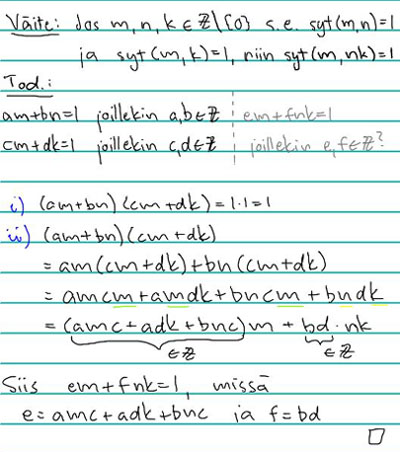 Väite: Jos m, n, k ∈ ℤ\{0} s.e. syt(m,n)=1
ja syt(m,k)=1, niin syt(m,nk)=1
Tod.:
am+bn=1 joillekin a,b∈ℤ em+fnk=1
cm+dk=1 joillekin c,d∈ℤ joillekin e,f∈ℤ?
i) (am+bn)(cm+dk)=1·1=1
ii) (am+bn)(cm+dk)
= am(cm+dk)+bn(cm+dk)
= amcm+amdk+bncm+bndk
= (amc+adk+bnc)m + bd·nk
∈ℤ ∈ℤ
Siis em+fnk=1, missä
e=amc+adk+bnc ja f=bd
□